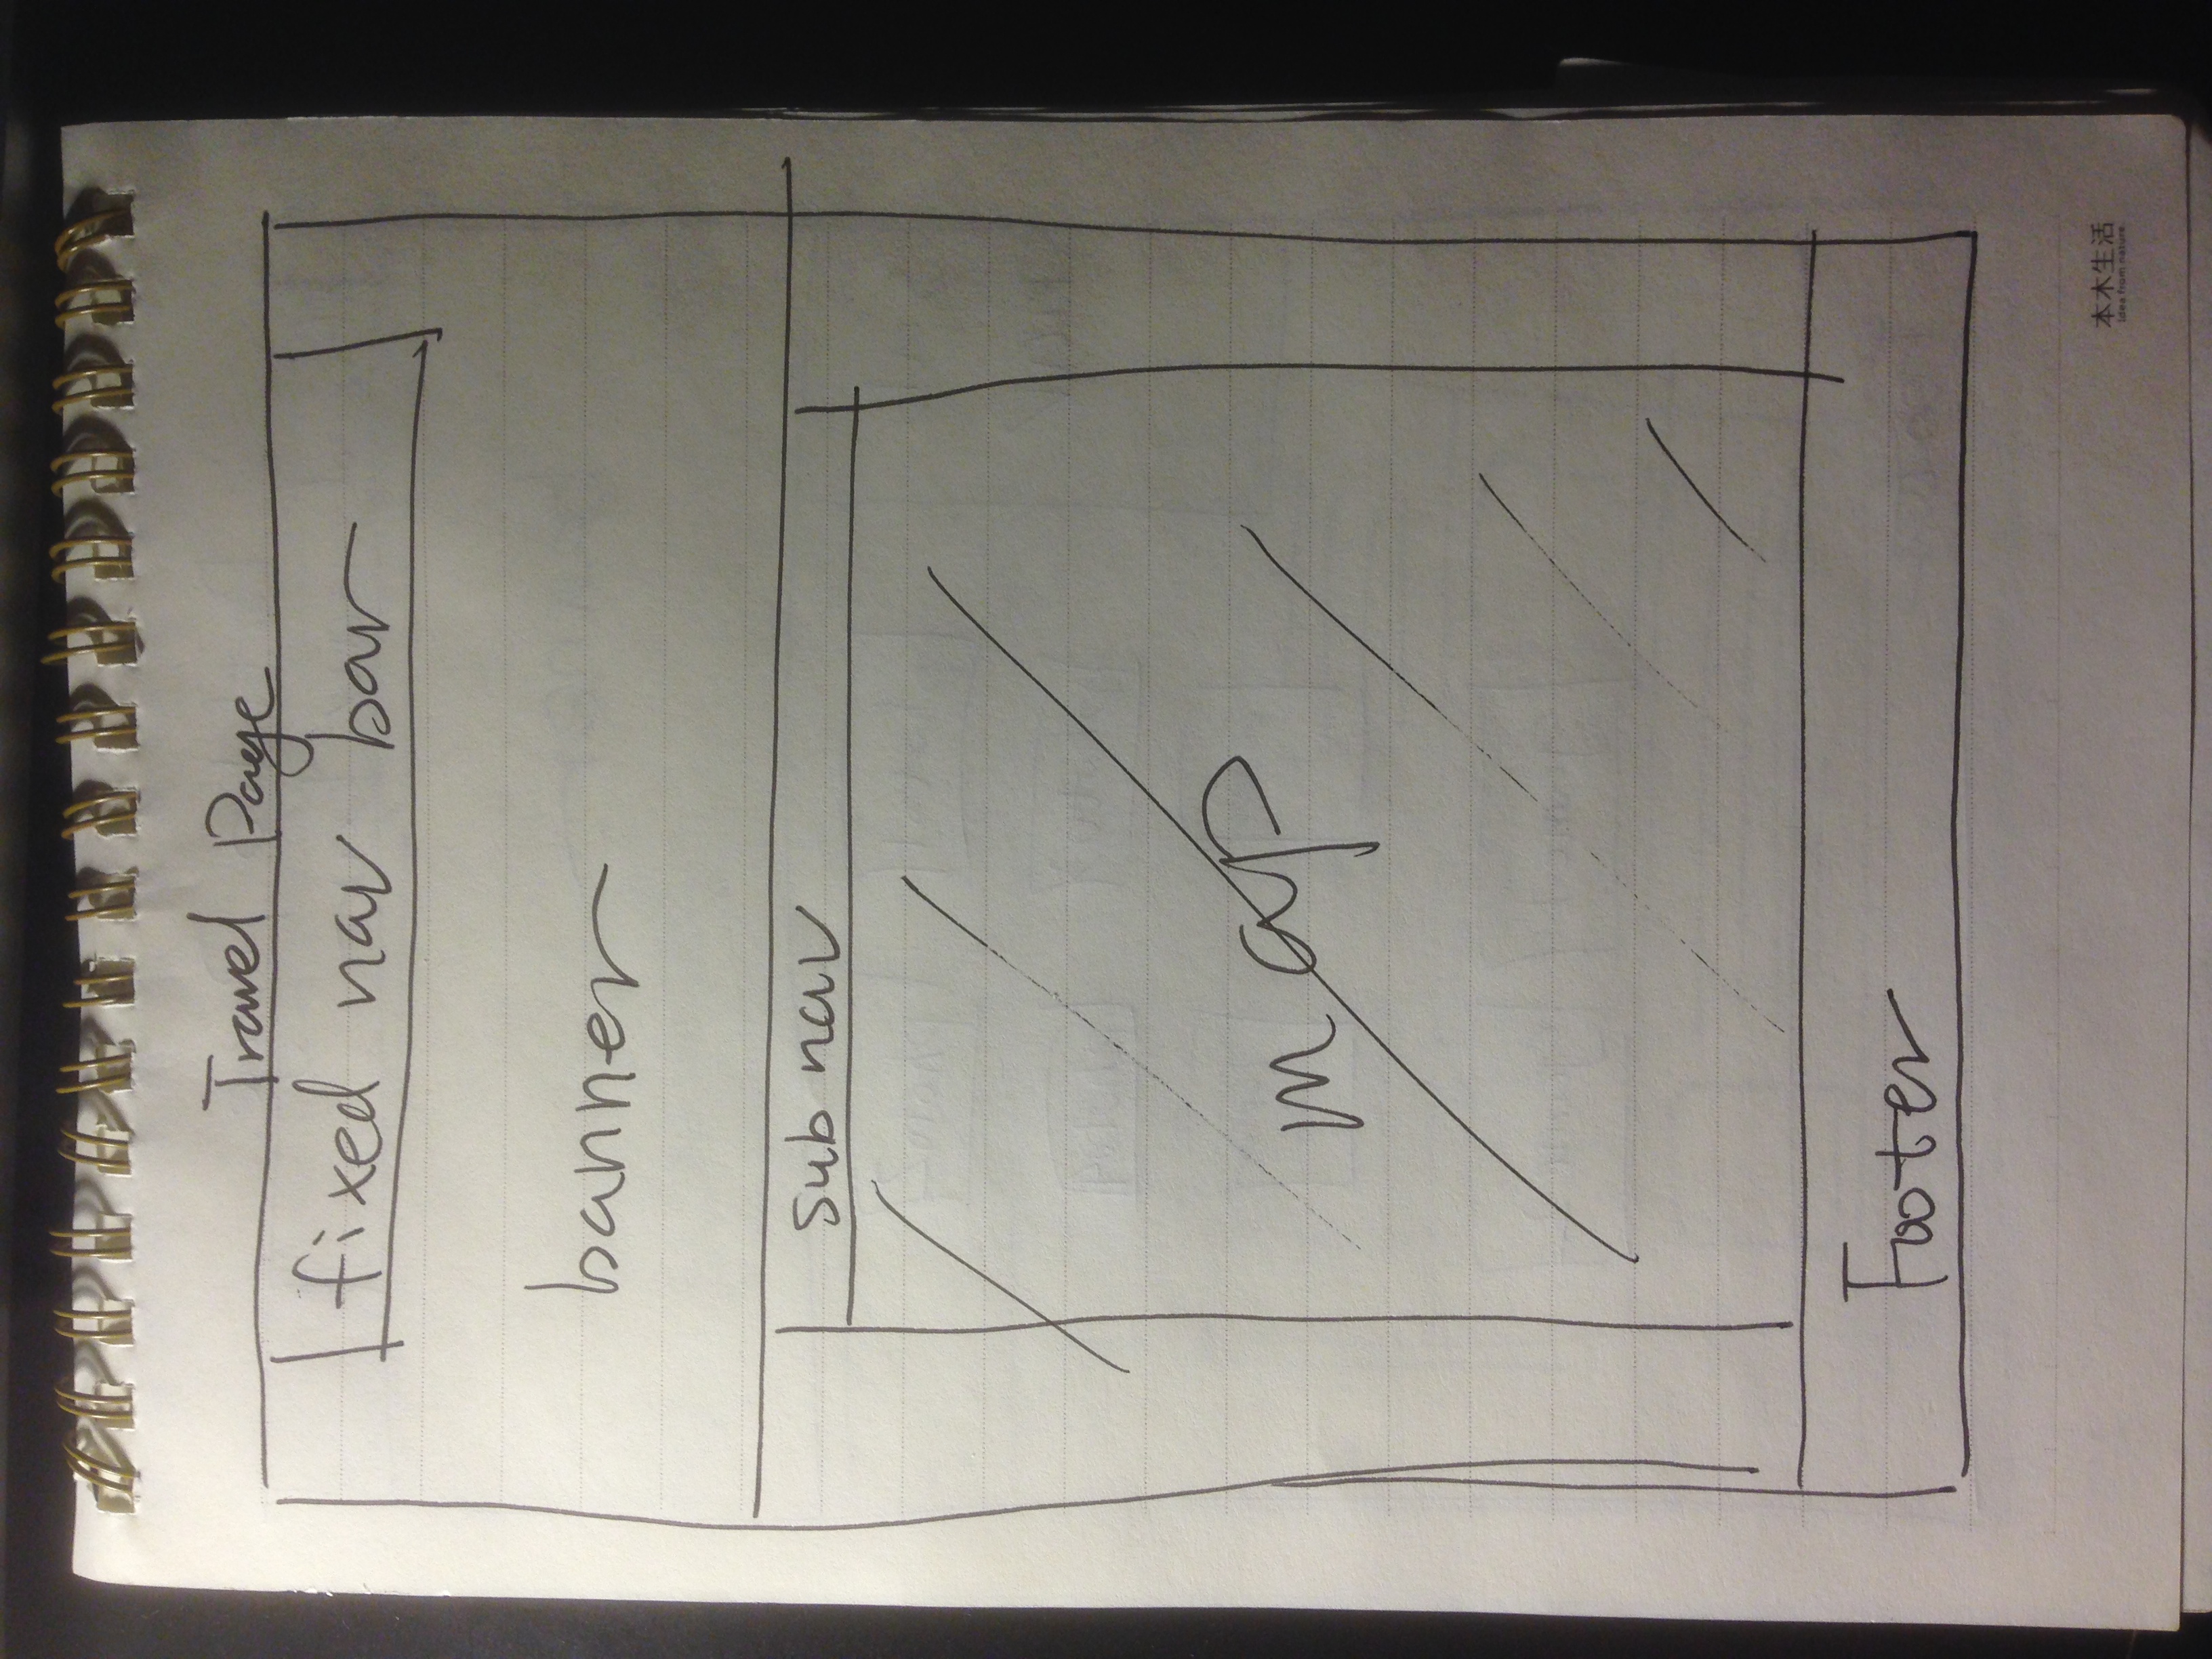 Travel Page
fixed nav bar
banner
sub nav
map
Footer
本木生活
Idea from nature